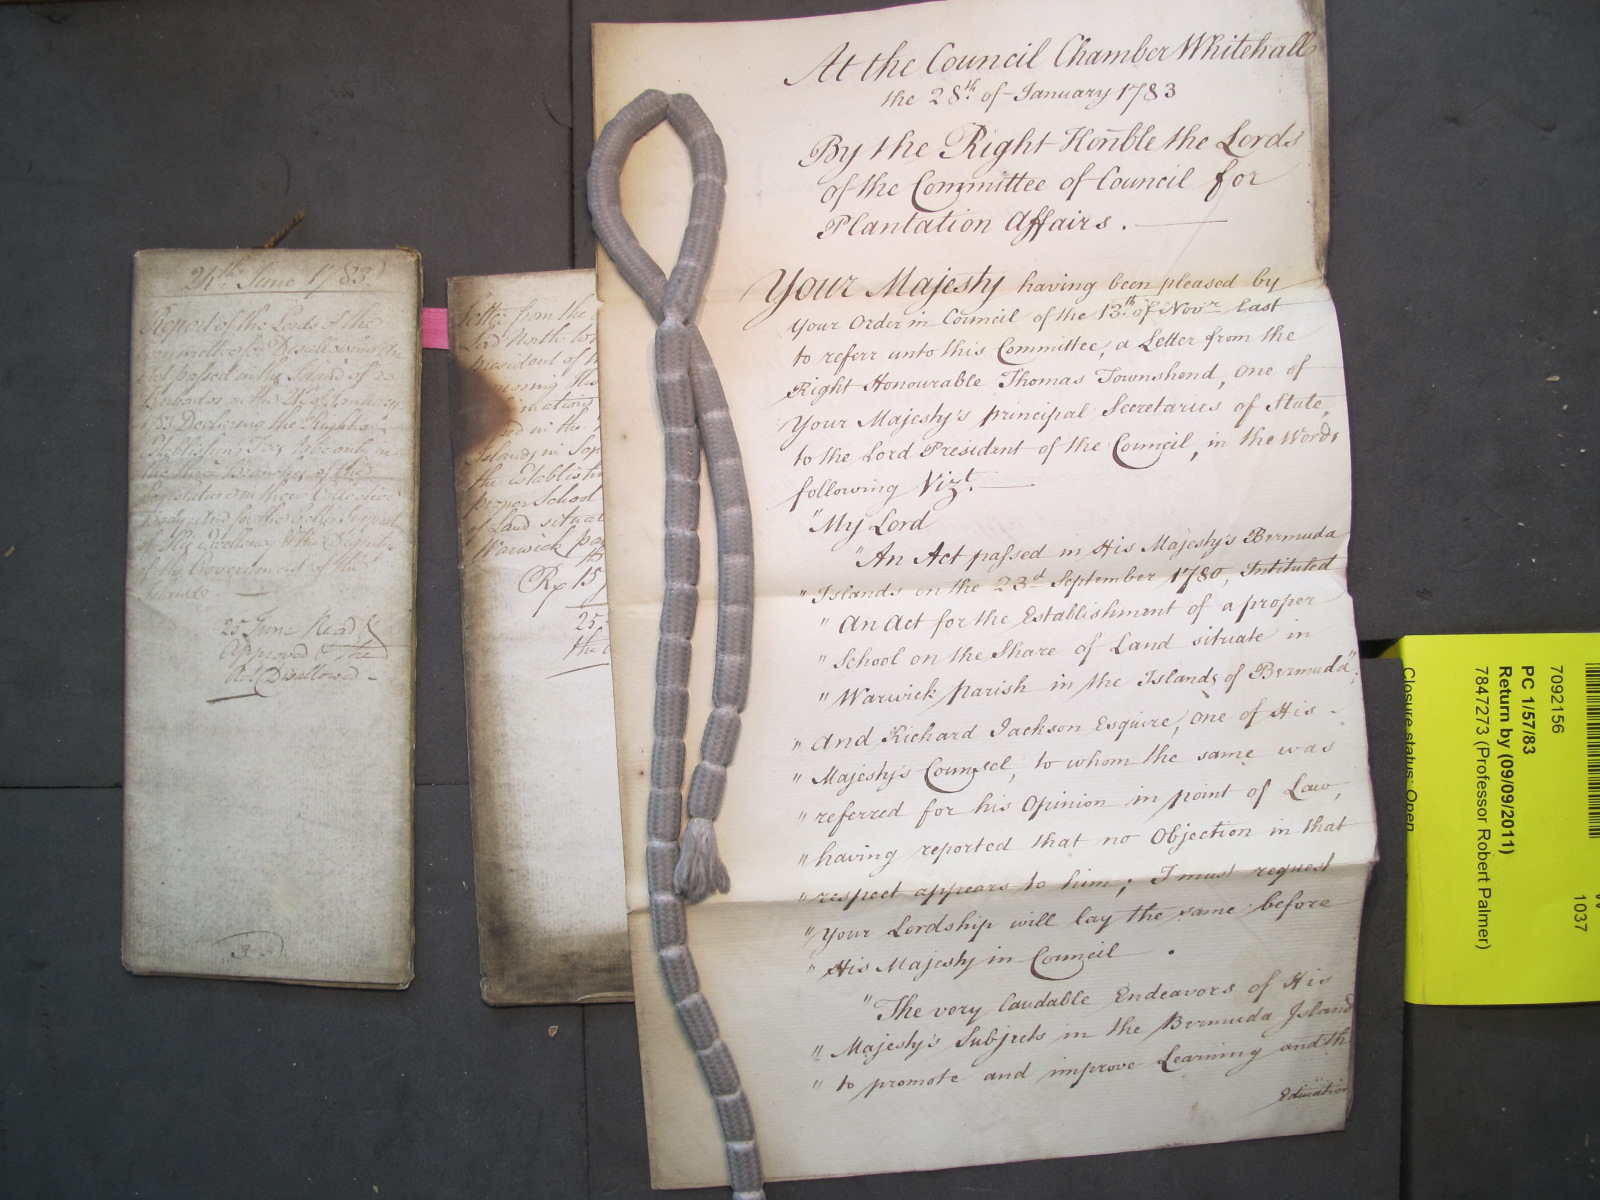 24th June 1783
Report of the Lords of the
Committee for Disallowing the
Act passed in the Island of
Barbados
1783 Declaring the Right of
Establishing Fees to be only in
the three Branches of the
Legislature in their Collective
Body, and for the better Support
of His Excellency & the Dignity
of the Government of this
Island
25 June Read &
Approved & the
Act Disallowed
3
Letter from the
Lord North to
President of
in the
Islands in Sep
the establish
proper School
of Land situat
Warwick pa
Rx 15
25
the
At the Council Chamber Whitehall
the 28th of January 1783
By the Right Honble the Lords
of the Committee of Council for
Plantation Affairs.
Your Majesty having been pleased by
Your Order in Council of the 13th of Novr last
to referr unto this Committee, a Letter from the
Right Honourable Thomas Townshend, one of
Your Majesty's principal Secretaries of State,
to the Lord President of the Council, in the Words
following Vizt.
"My Lord
"An Act passed in His Majesty's Bermuda
"Islands on the 23d September 1780, Intituled
"An Act for the Establishment of a proper
"School on the Share of Land situate in
"Warwick parish in the Islands of Bermuda";
"And Richard Jackson Esquire, one of His
"Majesty's Counsel, to whom the same was
"referred for his Opinion in point of Law,
"having reported that no Objection in that
"respect appears to him; I must request
"Your Lordship will lay the same before
"His Majesty in Council.
"The very laudable Endeavors of His
"Majesty's Subjects in the Bermuda Island
"to promote and improve Learning and th
Education
7092156
PC 1/57/83
Return by (09/09/2011)
7847273 (Professor Robert Palmer)
Closure status: Open
1037